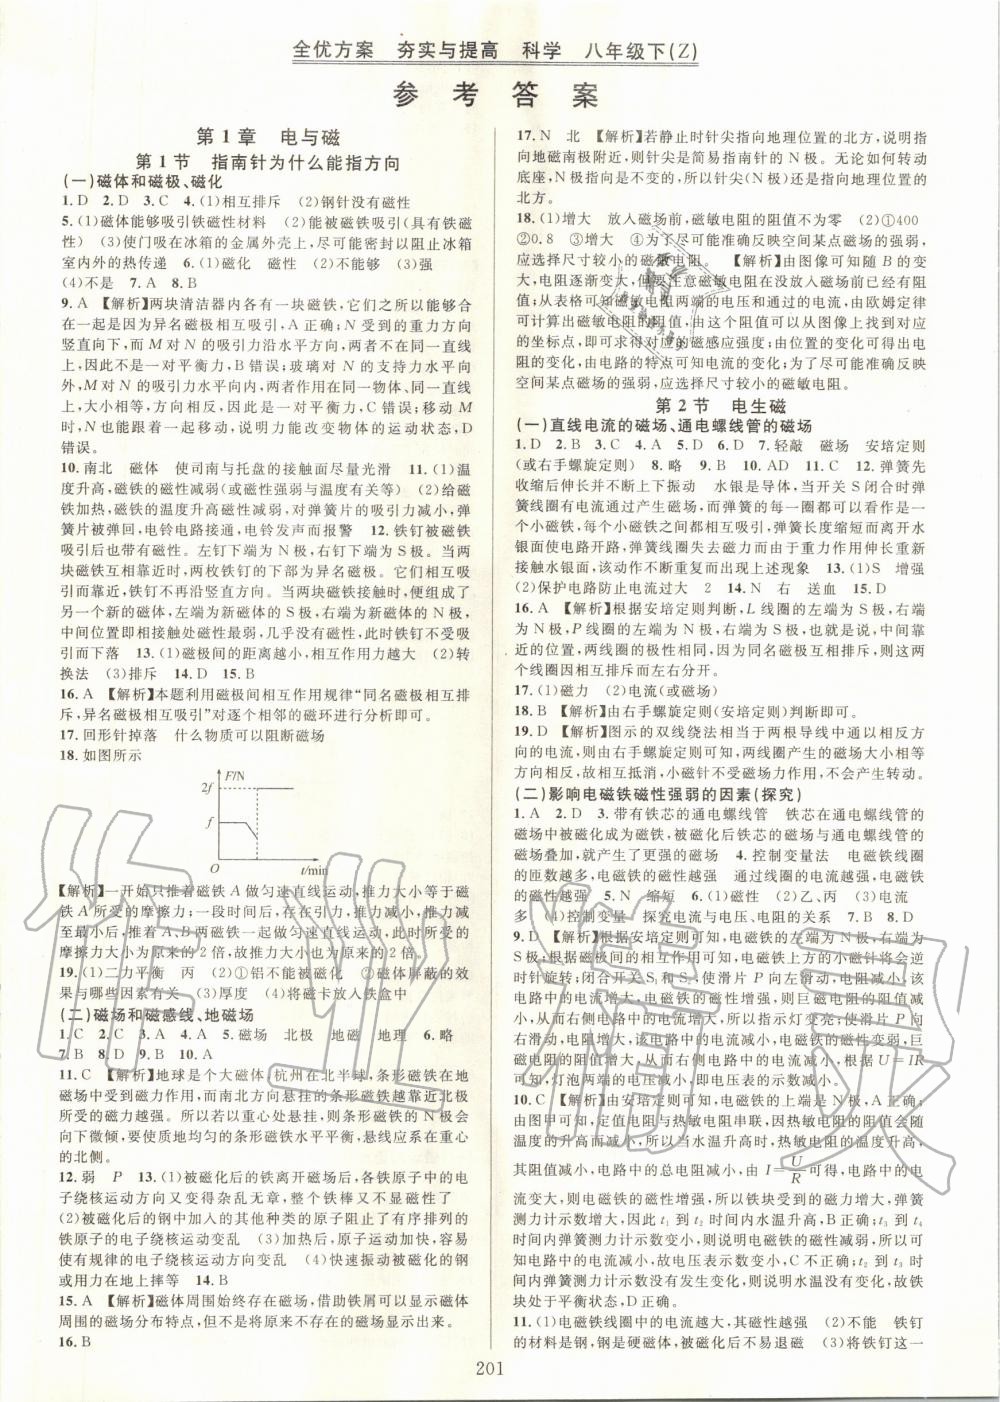 全优方案 夯实与提高 科学 八年级下(Z)
参考答案
第1章 电与磁
第1节 指南针为什么能指方向
(一)磁体和磁极、磁化
1.D 2.D 3.C 4.(1)相互排斥 (2)钢针没有磁性
5.(1)磁体能够吸引铁磁性材料 (2)能被磁铁吸引(具有铁磁
性) (3)使门吸在冰箱的金属外壳上,尽可能密封以阻止冰箱
室内外的热传递 6.(1)磁化 磁性 (2)不能 (3)强
(4)不是 7.A 8.B
9.A 【解析】两块清洁器内各有一块磁铁,它们之所以能够合
在一起是因为异名磁极相互吸引,A正确;N受到的重力方向
竖直向下,而M对N的吸引力沿水平方向,两者不在同一直线
上,因此不是一对平衡力,B错误;玻璃对N的支持力水平向
外,M对N的吸引力水平向内,两者作用在同一物体、同一直线
上,大小相等,方向相反,因此是一对平衡力,C错误;移动M
时,N也会跟着移动,说明力能改变物体的运动状态,D
错误。
10.南北 磁体 使司南与托盘的接触面尽量光滑 11.(1)温
度升高,磁铁的磁性减弱(或磁性强弱与温度有关等) (2)给磁
铁加热,磁铁的温度升高磁性减弱,对弹簧片的吸引力减小,弹
簧片被弹回,电铃电路接通,电铃发声而报警 12.铁钉被磁铁
吸引后也带有磁性。左钉下端为N极,右钉下端为S极。当两
块磁铁互相靠近时,两枚铁钉的下部为异名磁极,所以相互吸
引而靠近,铁钉不再沿竖直方向。当两磁铁吸引时,便组成了
另一个新的磁体,左端为新磁体的S极,右端为新磁体的N极,
中间位置即相接触处磁性最弱,几乎没有磁性,此时铁钉不受吸
引而下落 13.(1)磁极间的距离越小,相互作用越大 (2)转
换法 (3)排斥 14.D 15.B
16.A 【解析】本题利用磁极间相互作用规律“同名磁极相互排
斥,异名磁极相互吸引”对逐个相邻的磁环进行分析即可。
17.回形针掉落 什么物质可以阻断磁场
18.如图所示
F/N
2f
f
O t/min
【解析】一开始只推着磁铁A做匀速直线运动,推力大小等于磁
铁A所受的摩擦力;一段时间后,存在引力,推力减小,减小
至最小后,推着A、B两磁铁一起做匀速直线运动,此时所受的
摩擦力大小为原来的2倍,故推力大小为原来的2倍。
19.(1)二力平衡 丙 (2)①铝不能被磁化 ②磁体屏蔽的效
果与哪些因素有关 (3)厚度 (4)将磁卡放入铁盒中
(二)磁场和磁感线、地磁场
1.C 2.C 3.A 4.A 5.磁场 北极 地磁 地理 6.略
7.B 8.B 9.D 10.A
11.C 【解析】地球是个大磁体,杭州在北半球,条形磁铁在地
磁场中受到磁力作用,而南北方向悬挂的条形磁铁越靠近地磁
的磁力越强。所以若以重心处悬挂,则条形磁铁的N极会
向下微倾,要使质地均匀的条形磁铁水平平衡,悬线应系在重心
的北侧。
12.弱 P 13.(1)被磁化后的铁离开磁场后,各铁原子中的电
子绕核运动方向又变得杂乱无章,整个铁棒又不显磁性了
(2)被磁化后的钢中加入的其他种类的原子阻碍了有序排列的
铁原子的电子绕核运动方向变乱 (3)加热后,原子运动加快,
使有规律的电子绕核运动方向变乱 (4)快速振动被磁化的钢
或用力在地上摔等 14.B
15.A 【解析】磁体周围始终存在磁场,借助铁屑可以显示磁体
周围的磁场分布特点,但不是将原来不存在的磁场显示出来。
16.B
17.N 北 【解析】若静止时针尖指向地理位置的北方,说明指
向地磁南极附近,则针尖是简易指南针的N极。无论如何转动
底座,磁极指向是不变的,所以针尖(N极)还是指向地理位置的
北方。
18.(1)增大 放入磁场前,磁敏电阻的阻值不为零 (2)①400
②0.8 ③增大 ④为了尽可能准确反映空间某点磁场的强弱,
应选择尺寸较小的磁敏电阻。 【解析】由图像可知随B的变
大,电阻逐渐变大,但要注意磁感应强度为零时,电阻有一定阻
值;从表格可知磁敏电阻两端的电压和通过的电流,由欧姆定律
可计算出磁敏电阻的阻值,由这个阻值可以从图像上找到对应
的坐标点,即可求得对应的磁感应强度;由位置的变化可得出电
阻的变化,由电路的特点可知电流的变化;为了尽可能准确反映
空间某点磁场的强弱,应选择尺寸较小的磁敏电阻。
第2节 电生磁
(一)直线电流的磁场、通电螺线管的磁场
1.D 2.B 3.C 4.A 5.D 6.D 7.轻敲 磁场 安培定则
(或右手螺旋定则) 8.略 9.B 10.AD 11.C 12.弹簧先
收缩后伸长并不断上下振动 水银是导体,当开关S闭合时弹
簧线圈有电流通过产生磁场,而弹簧的每一圈都可以看作是一
个小磁铁,每个小磁铁之间都相互吸引,弹簧长度缩短而离开水
银面使电路开路,弹簧线圈失去磁力而由于重力作用伸长重新
接触水银面,该动作不断重复而出现上述现象 13.(1)S 增强
(2)保护电路防止电流过大 2 14.N 右 送血 15.D
16.A 【解析】根据安培定则判断,L线圈的左端为S极,右端
为N极,P线圈的左端为N极,右端为S极。也就是说,中间靠
近的位置,两个线圈的极性相同,因为同名磁极相互排斥,所以这
两个线圈因相互排斥而左右分开。
17.(1)磁力 (2)电流(或磁场)
18.B 【解析】由右手螺旋定则(安培定则)判断即可。
19.D 【解析】图示的双线绕法相当于两根导线中通以相反方
向的电流,则由右手螺旋定则可知,两线圈产生的磁场大小相等
方向相反,故相互抵消,小磁针不受磁场力作用,不会产生转动。
(二)影响电磁铁磁性强弱的因素(探究)
1.A 2.D 3.带有铁芯的通电螺线管 铁芯在通电螺线管的
磁场中被磁化成为磁铁,被磁化后铁芯的磁场与通电螺线管的
磁场叠加,就产生了更强的磁场 4.控制变量法 电磁铁线圈
的匝数越多,电磁铁的磁性越强 通过线圈的电流越大,电磁铁
的磁性越强 5.N 缩短 6.(1)磁性 (2)乙、丙 (3)电流
多 (4)控制变量 探究电流与电压、电阻的关系 7.B 8.D
9.D 【解析】根据安培定则可知,电磁铁的左端为N极,右端为
S极,根据磁极间的相互作用可知,电磁铁上方的小磁针将会逆
时针旋转;闭合开关S₁和S₂,使滑片P向左滑动,电阻减小,该
电路中的电流增大,电磁铁的磁性增强,则巨磁电阻的阻值减
小,其所在电路中的电流增大,所以指示灯变亮;使滑片P向
右滑动,电阻增大,该电路中的电流减小,电磁铁的磁性变弱,巨
磁电阻的阻值增大,其所在电路中的电流减小,根据U=IR
可知,灯泡两端的电压应减小,即电压表的示数减小。
10.C 【解析】由安培定则可知,电磁铁的上端是N极,A正确;
由图甲可知,定值电阻与热敏电阻串联,因热敏电阻的阻值会随
温度的升高而减小,所以当水温升高时,热敏电阻的阻值减小,
其阻值减小,电路中的总电阻减小,由I=U/R可得,电路中的电
流变大,则电磁铁的磁性增强,所以铁块受到的磁力增大,弹簧
测力计示数增大,因此t₁到t₂时间内水温升高,B正确;所以可
知电路中的电流减小,故电压表示数变小,C不正确;t₂到t₃时
间内弹簧测力计示数没有发生变化,则说明水温没有变化,故铁
块处于平衡状态,D正确。
11.(1)电磁铁线圈中的电流越大,其磁性越强 (2)不能 铁钉
的材料是钢,钢是硬磁体,被磁化后不易退磁 (3)将铁钉这一
201
作业精灵